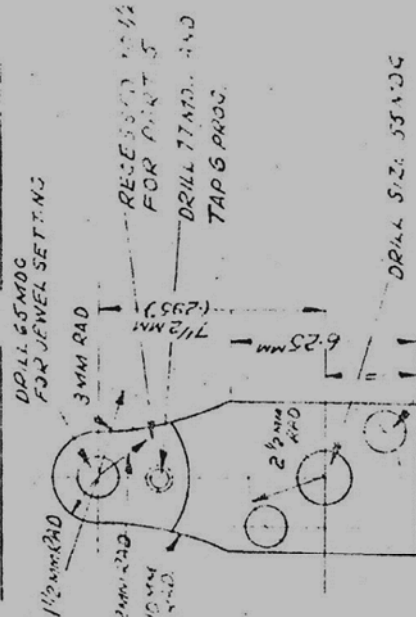 DRILL 65MDG
FOR JEWEL SETTING
3MM RAD
RECESSED
FOR PART 5
DRILL 77MD AND
TAP 6 PROG.
7 1/2 MM
(.295)
6.25MM
DRILL SIZE 55MDG
2 1/2 MM
RAD
1 1/2 MM RAD
MM RAD
RAD.